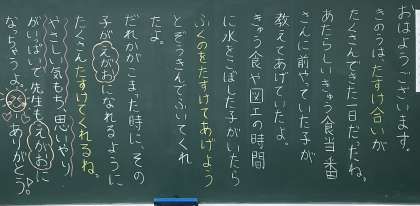 おはようございます。
きのうは、たすけ合いが
たくさんできた一日だったね。
あたらしいきゅう食当番
さんに前やっていた子が
教えてあげていたよ。
きゅう食や図工の時間
に水をこぼした子がいたら
ふくのをたすけてあげよう
とぞうきんでふいてくれ
たよ。
だれかがこまった時に、その
子がえがおになれるように
たくさんたすけてくれるね。
やさしい気もち、思いやり
がいっぱいで先生もえがおに
なっちゃうよ。ありがとう!